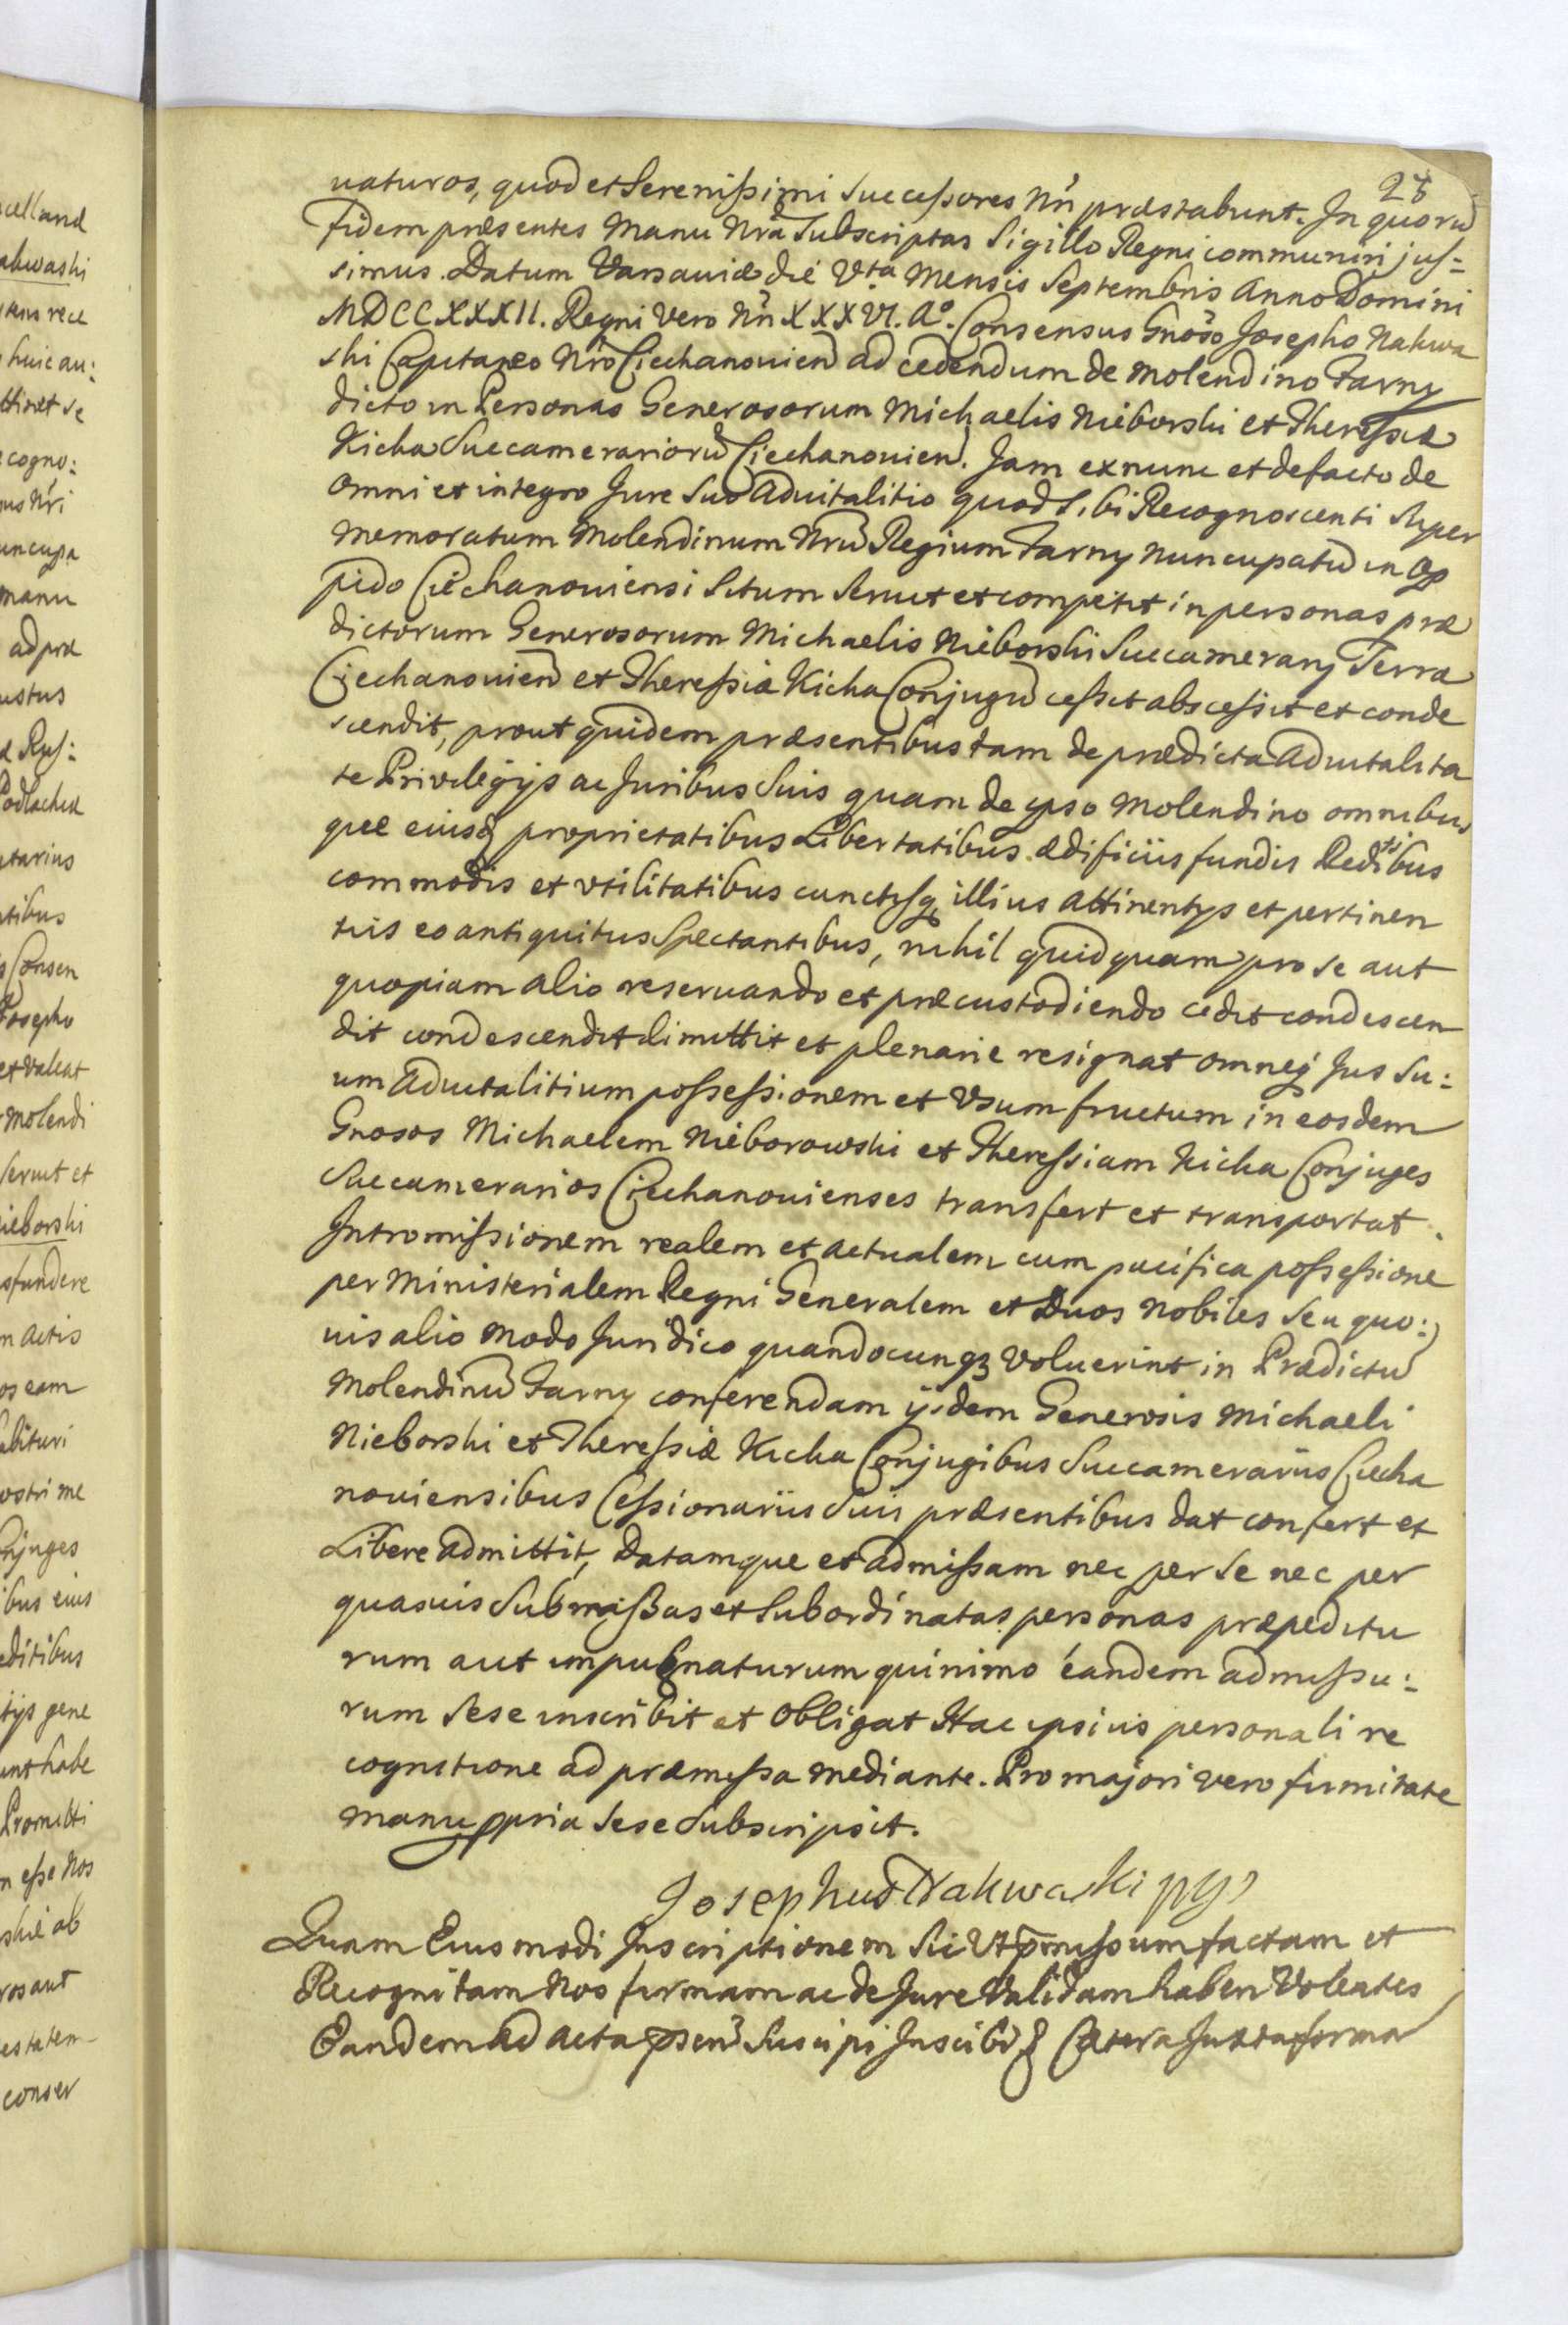 28
uaturos, quod et Serenißimi Succeßores Nri præstabunt. In quoru
fidem præsentes Manu Nra Subscriptas Sigillo Regni communiri jus=
simus. Datum Varsauiæ die Vta Mensis Septembris Anno Domini
MDCCXXXII. Regni Vero Nri XXXVI. Ao. Consensus Gnoso Josepho Nakwa
ski Capitaneo Nro Ciechanouien ad cedendum de Molendino Farny
dicto in Personas Generosorum Michaelis Nieborski et Thereßiæ
Kicka Succamerarioru Ciechanouien. Jam ex nunc et de facto de
Omni et integro Jure Suo Aduitalitio quod Sibi Recognoscenti Super
Memoratum Molendinum Nru Regium Farny nuncupatu in Op
pido Ciechanouiensi Situm Seruit et competit in personas præ
dictorum Generosorum Michaelis Nieborski Succamerarij Terræ
Ciechanouien et Thereßiæ Kicka Conjugu ceßit absceßit et conde
scendit, prout quidem præsentibus tam de prædicta Aduitalita
te Privilegijs ac Juribus Suis quam de ipso Molendino omnibus
que eiusq proprietatibus Libertatibus ædificiis fundis Redditibus
commodis et vtilitatibus cunctisq illius Attinentijs et pertinen
tiis eo antiquitus Spectantibus, nihil quidquam pro se aut
quopiam alio reseruando et præcustodiendo cedit condescen
dit condescendit dimittit et plenarie resignat omneq Jus Su=
um Aduitalitium poßeßionem et Vsumfructum in eosdem
Gnosos Michaelem Nieborowski et Thereßiam Kicka Conjuges
Succamerarios Ciechanouienses transfert et transportat.
Intromißionem realem et actualem cum pacifica poßeßione
per Ministerialem Regni Generalem et Duos Nobiles Seu quo=
uis alio Modo Juridico quandocunq Voluerint in Prædictu
Molendinu Farny conferendam ijsdem Generosis Michaeli
Nieborski et Thereßiæ Kicka Conjugibus Succamerariis Ciecha
nouiensibus Ceßionariis Suis præsentibus dat confert et
Libere admittit, Datamque et admißam nec per se nec per
quasuis Submißas et Subordinatas personas præpeditu
rum aut impugnaturum quinimo eandem admißu=
rum Sese inscribit et Obligat Hac ipsius personali re
cognitione ad præmißa mediante. Pro majori vero firmitate
manu ppria Sese Subscripsit.
Josephus Nakwaski
Quam Eiusmodi Inscriptionem Sic Vt pmißum factam et
Recognitam Nos firmam ac de Jure Validam haberi Volentes
Eandem ad Acta psen Suscipi Inscribi q Cætera Juxta forma
ski
yms rece
huic au=
attinet se
ecogno=
nus Nri
uncupa
manu
ad præ
ustus
Podlachiæ
tarius
tibus
Consen
Josepho
et valeat
Molendi
Seruit et
ieborski
sfundere
n Actis
os eam
abituri
ostri me
onjuges
ibus eius
editibus
tijs gene
unt habe
Promitti
m eße Nos
ros aut
conser